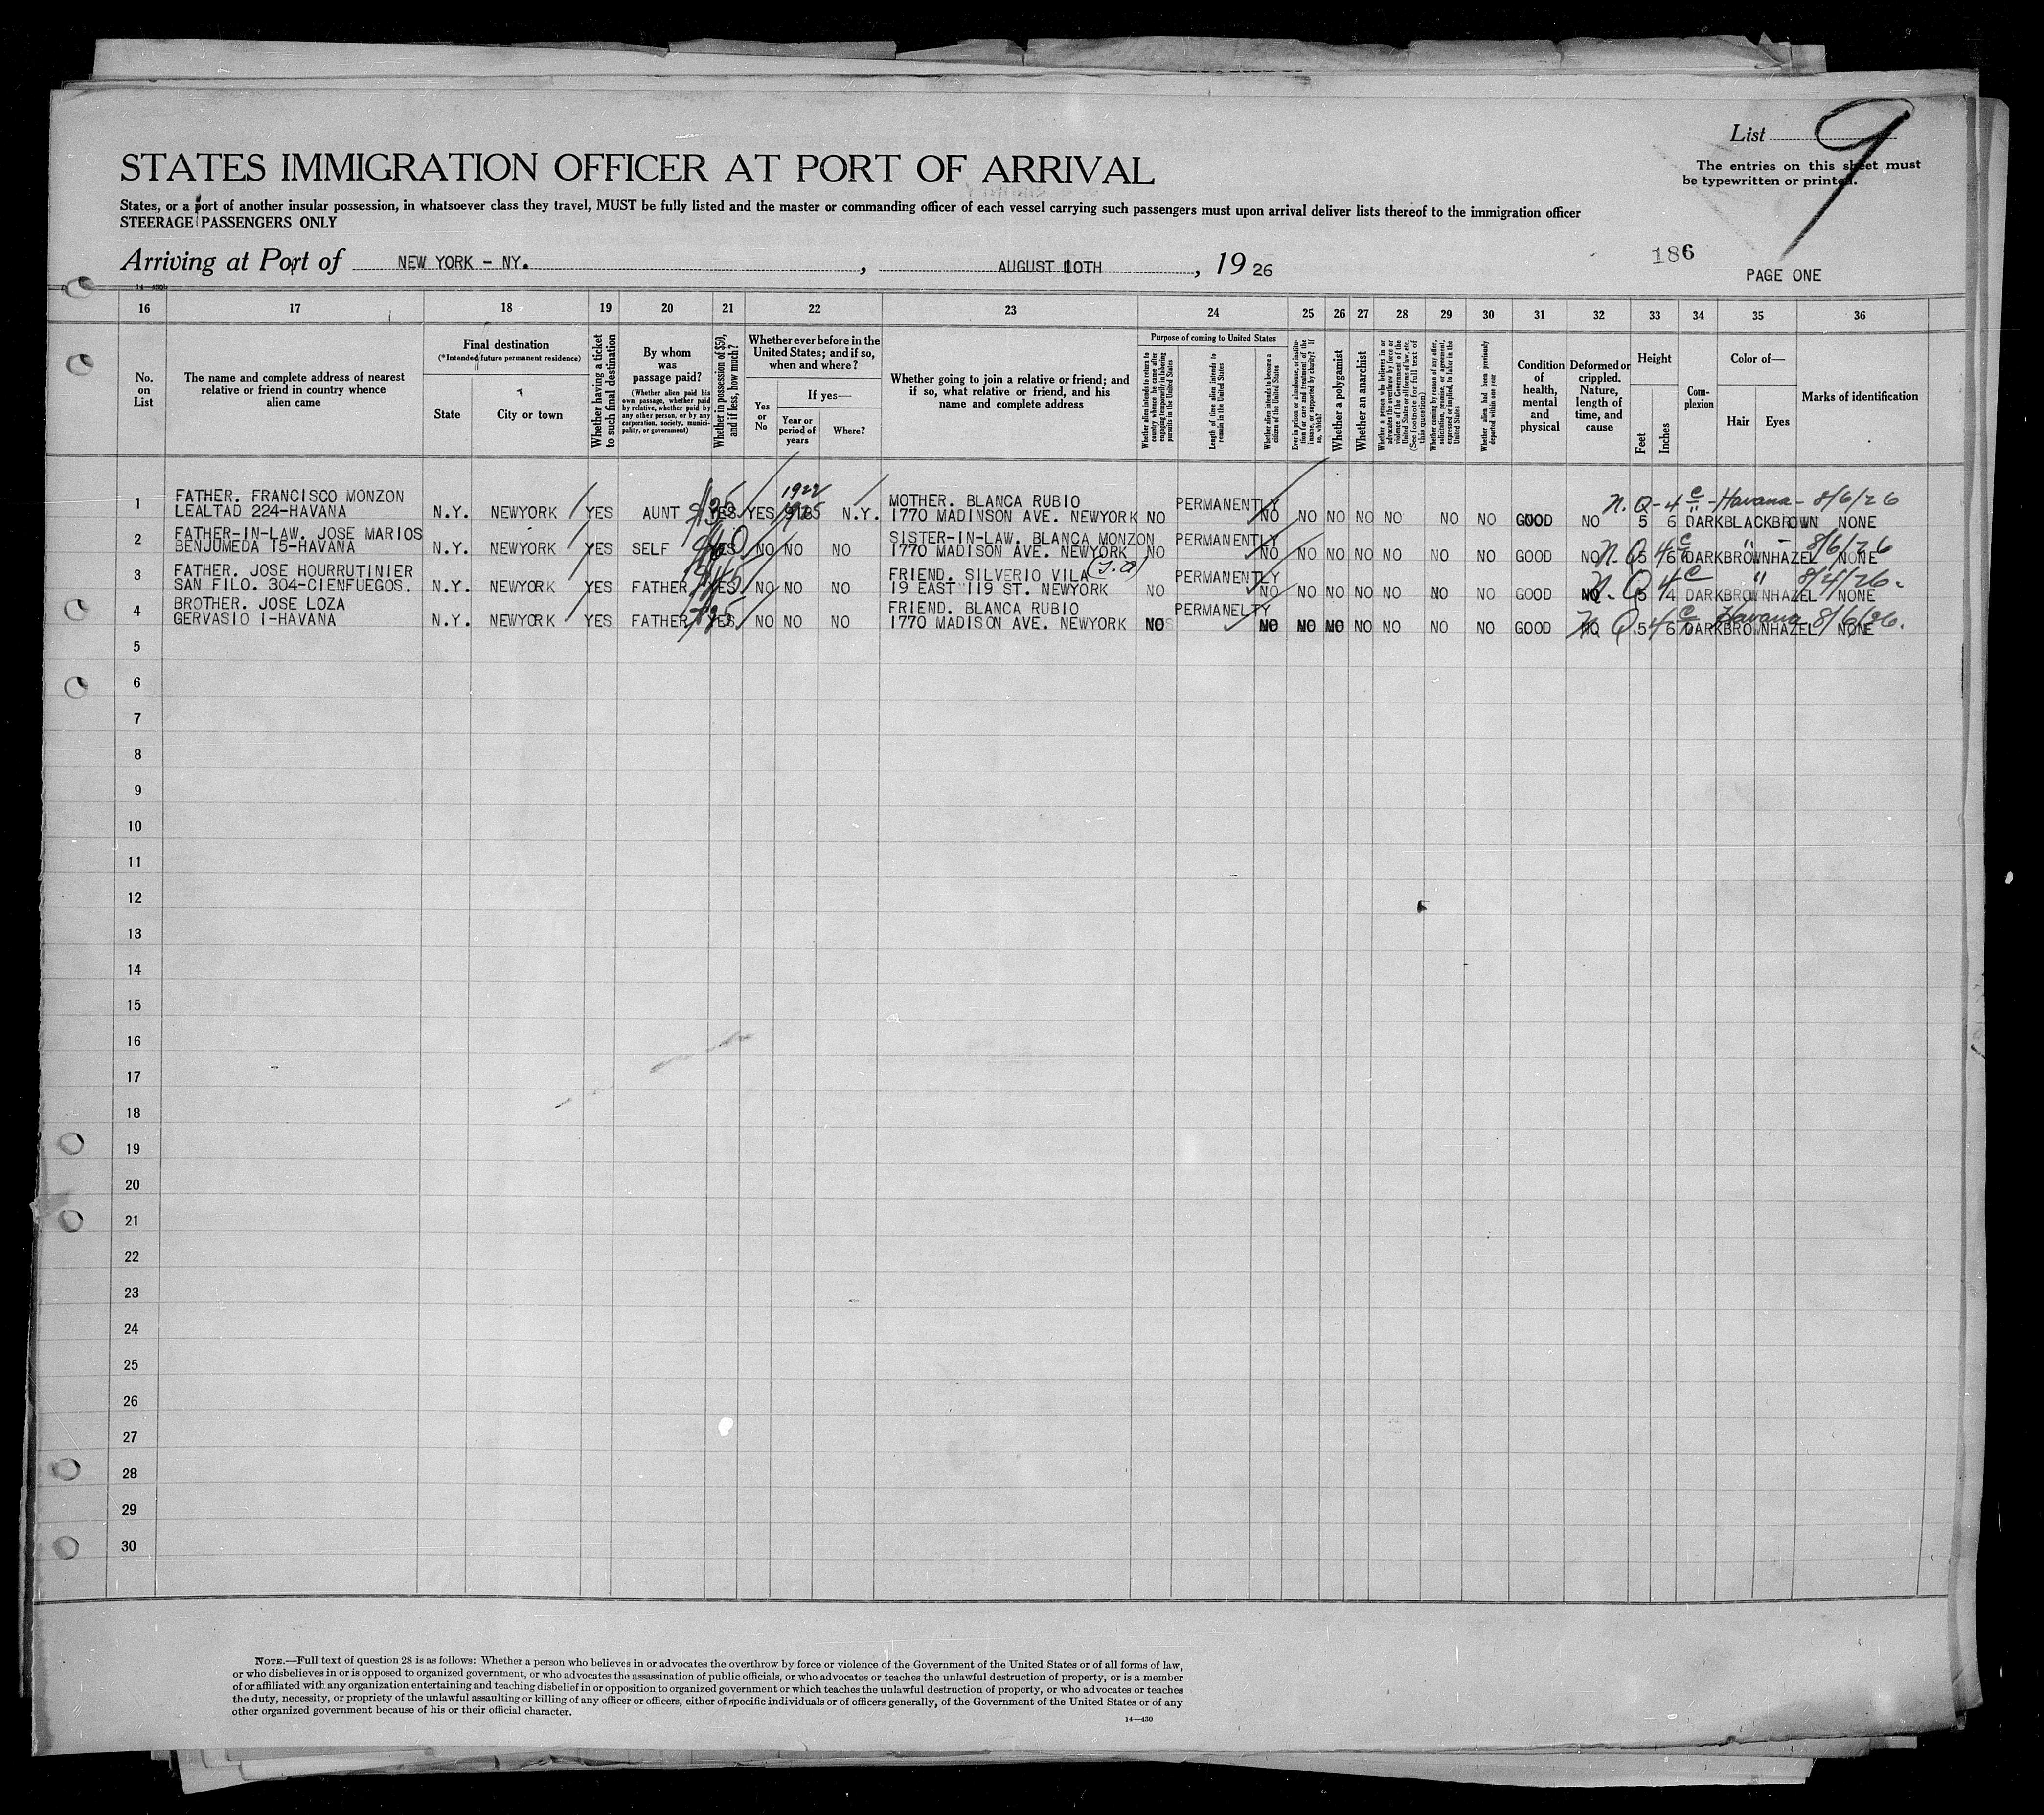 List 9
The entries on this sheet must
be typewritten or printed.
STATES IMMIGRATION OFFICER AT PORT OF ARRIVAL
States, or a port of another insular possession, in whatsoever class they travel, MUST be fully listed and the master or commanding officer of each vessel carrying such passengers must upon arrival deliver lists thereof to the immigration officer
STEERAGE PASSENGERS ONLY
Arriving at Port of NEW YORK - NY. , AUGUST 10TH , 19 26
186
PAGE ONE
16 17 18 19 20 21 22 23 24 25 26 27 28 29 30 31 32 33 34 35 36
No. on List
The name and complete address of nearest relative or friend in country whence alien came
Final destination
(*Intended future permanent residence)
State
City or town
Whether having a ticket to such final destination
By whom was passage paid?
(Whether alien paid his own passage, whether paid by relative, whether paid by any other person, or by any corporation, society, municipality, or government)
Whether in possession of $50, and if less, how much?
Whether ever before in the United States; and if so, when and where?
Yes or No
If yes—
Year or period of years
Where?
Whether going to join a relative or friend; and if so, what relative or friend, and his name and complete address
Purpose of coming to United States
Whether alien intends to return to country whence he came after engaging temporarily in laboring pursuits in the United States
Length of time alien intends to remain in the United States
Whether alien intends to become a citizen of the United States
Ever in prison or almshouse, or institution for care and treatment of the insane, or supported by charity? If so, which?
Whether a polygamist
Whether an anarchist
Whether a person who believes in or advocates the overthrow by force or violence of the Government of the United States or all forms of law, etc. (See footnote for full text of this question)
Whether coming by reason of any offer, solicitation, promise, or agreement, expressed or implied, to labor in the United States
Whether alien had been previously deported within one year
Condition of health, mental and physical
Deformed or crippled. Nature, length of time, and cause
Height
Feet
Inches
Complexion
Color of—
Hair
Eyes
Marks of identification
1 FATHER. FRANCISCO MONZON 1922 MOTHER. BLANCA RUBIO PERMANENTLY N.Q-4 c - Havana - 8/6/26
LEALTAD 224-HAVANA N.Y. NEWYORK YES AUNT YES YES N.Y. 1770 MADINSON AVE. NEWYORK NO NO NO NO NO NO NO NO GOOD NO 5 6 DARK BLACK BROWN NONE
2 FATHER-IN-LAW. JOSE MARIOS SISTER-IN-LAW. BLANCA MONZON PERMANENTLY 8/6/26
BENJUMEDA 15-HAVANA N.Y. NEWYORK YES SELF YES NO NO NO 1770 MADISON AVE. NEWYORK NO NO NO NO NO NO NO NO GOOD NO N.Q 4 c 5 6 DARK BROWN HAZEL NONE
3 FATHER. JOSE HOURRUTINIER FRIEND. SILVERIO VILA PERMANENTLY N.Q 4 c " 8/4/26.
SAN FILO. 304-CIENFUEGOS. N.Y. NEWYORK YES FATHER YES NO NO NO 19 EAST 119 ST. NEWYORK NO NO NO NO NO NO NO NO GOOD NO 5 4 DARK BROWN HAZEL NONE
4 BROTHER. JOSE LOZA FRIEND. BLANCA RUBIO PERMANELTY N.Q 4 c Havana 8/6/26.
GERVASIO 1-HAVANA N.Y. NEWYORK YES FATHER YES NO NO NO 1770 MADISON AVE. NEWYORK NO NO NO NO NO NO NO NO GOOD NO 5 6 DARK BROWN HAZEL NONE
5
6
7
8
9
10
11
12
13
14
15
16
17
18
19
20
21
22
23
24
25
26
27
28
29
30
NOTE.—Full text of question 28 is as follows: Whether a person who believes in or advocates the overthrow by force or violence of the Government of the United States or of all forms of law,
or who disbelieves in or is opposed to organized government, or who advocates the assassination of public officials, or who advocates or teaches the unlawful destruction of property, or is a member
of or affiliated with any organization entertaining and teaching disbelief in or opposition to organized government or which teaches the unlawful destruction of property, or who advocates or teaches
the duty, necessity, or propriety of the unlawful assaulting or killing of any officer or officers, either of specific individuals or of officers generally, of the Government of the United States or of any
other organized government because of his or their official character.
14—430